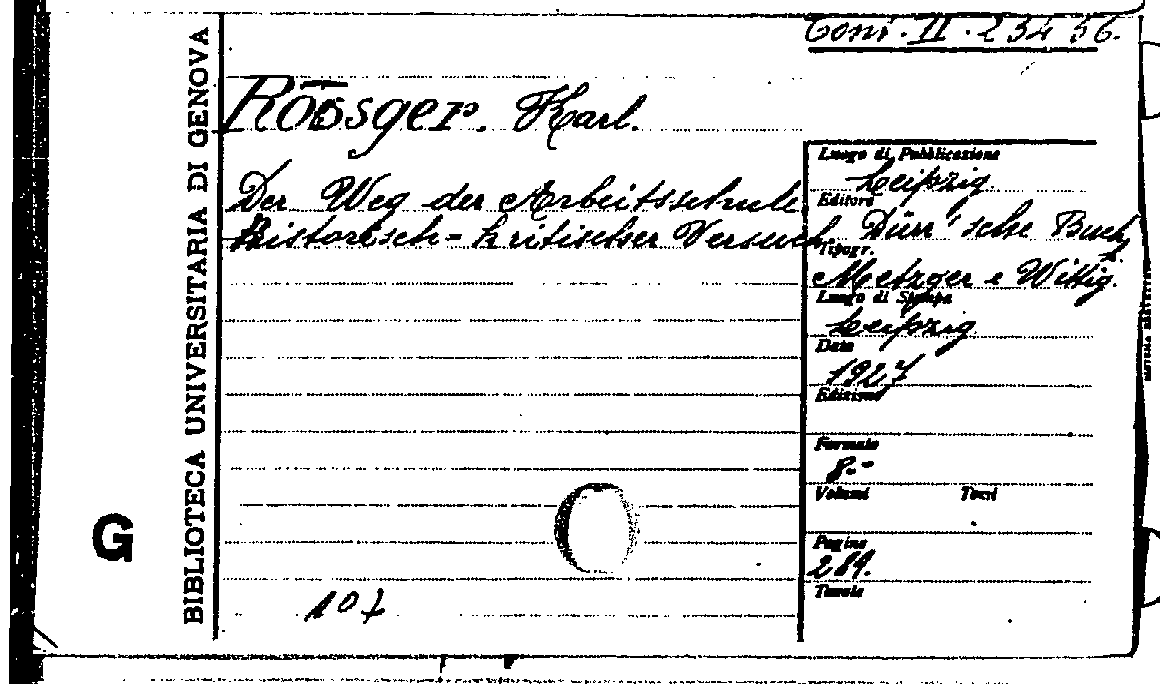 Conv. II. 23456.
BIBLIOTECA UNIVERSITARIA DI GENOVA
Rössger. Karl.
Der Weg der Arbeitsschule.
Historisch-kritischer Versuch
Luogo di Pubblicazione
Leipzig
Editore
Dürr'sche Buch
Tipogr.
Metzger e Wittig.
Luogo di Stampa
Leipzig
Data
1927
Edizione
Formato
8.-
Volumi Tomi
Pagine
289.
Tavole
G
107